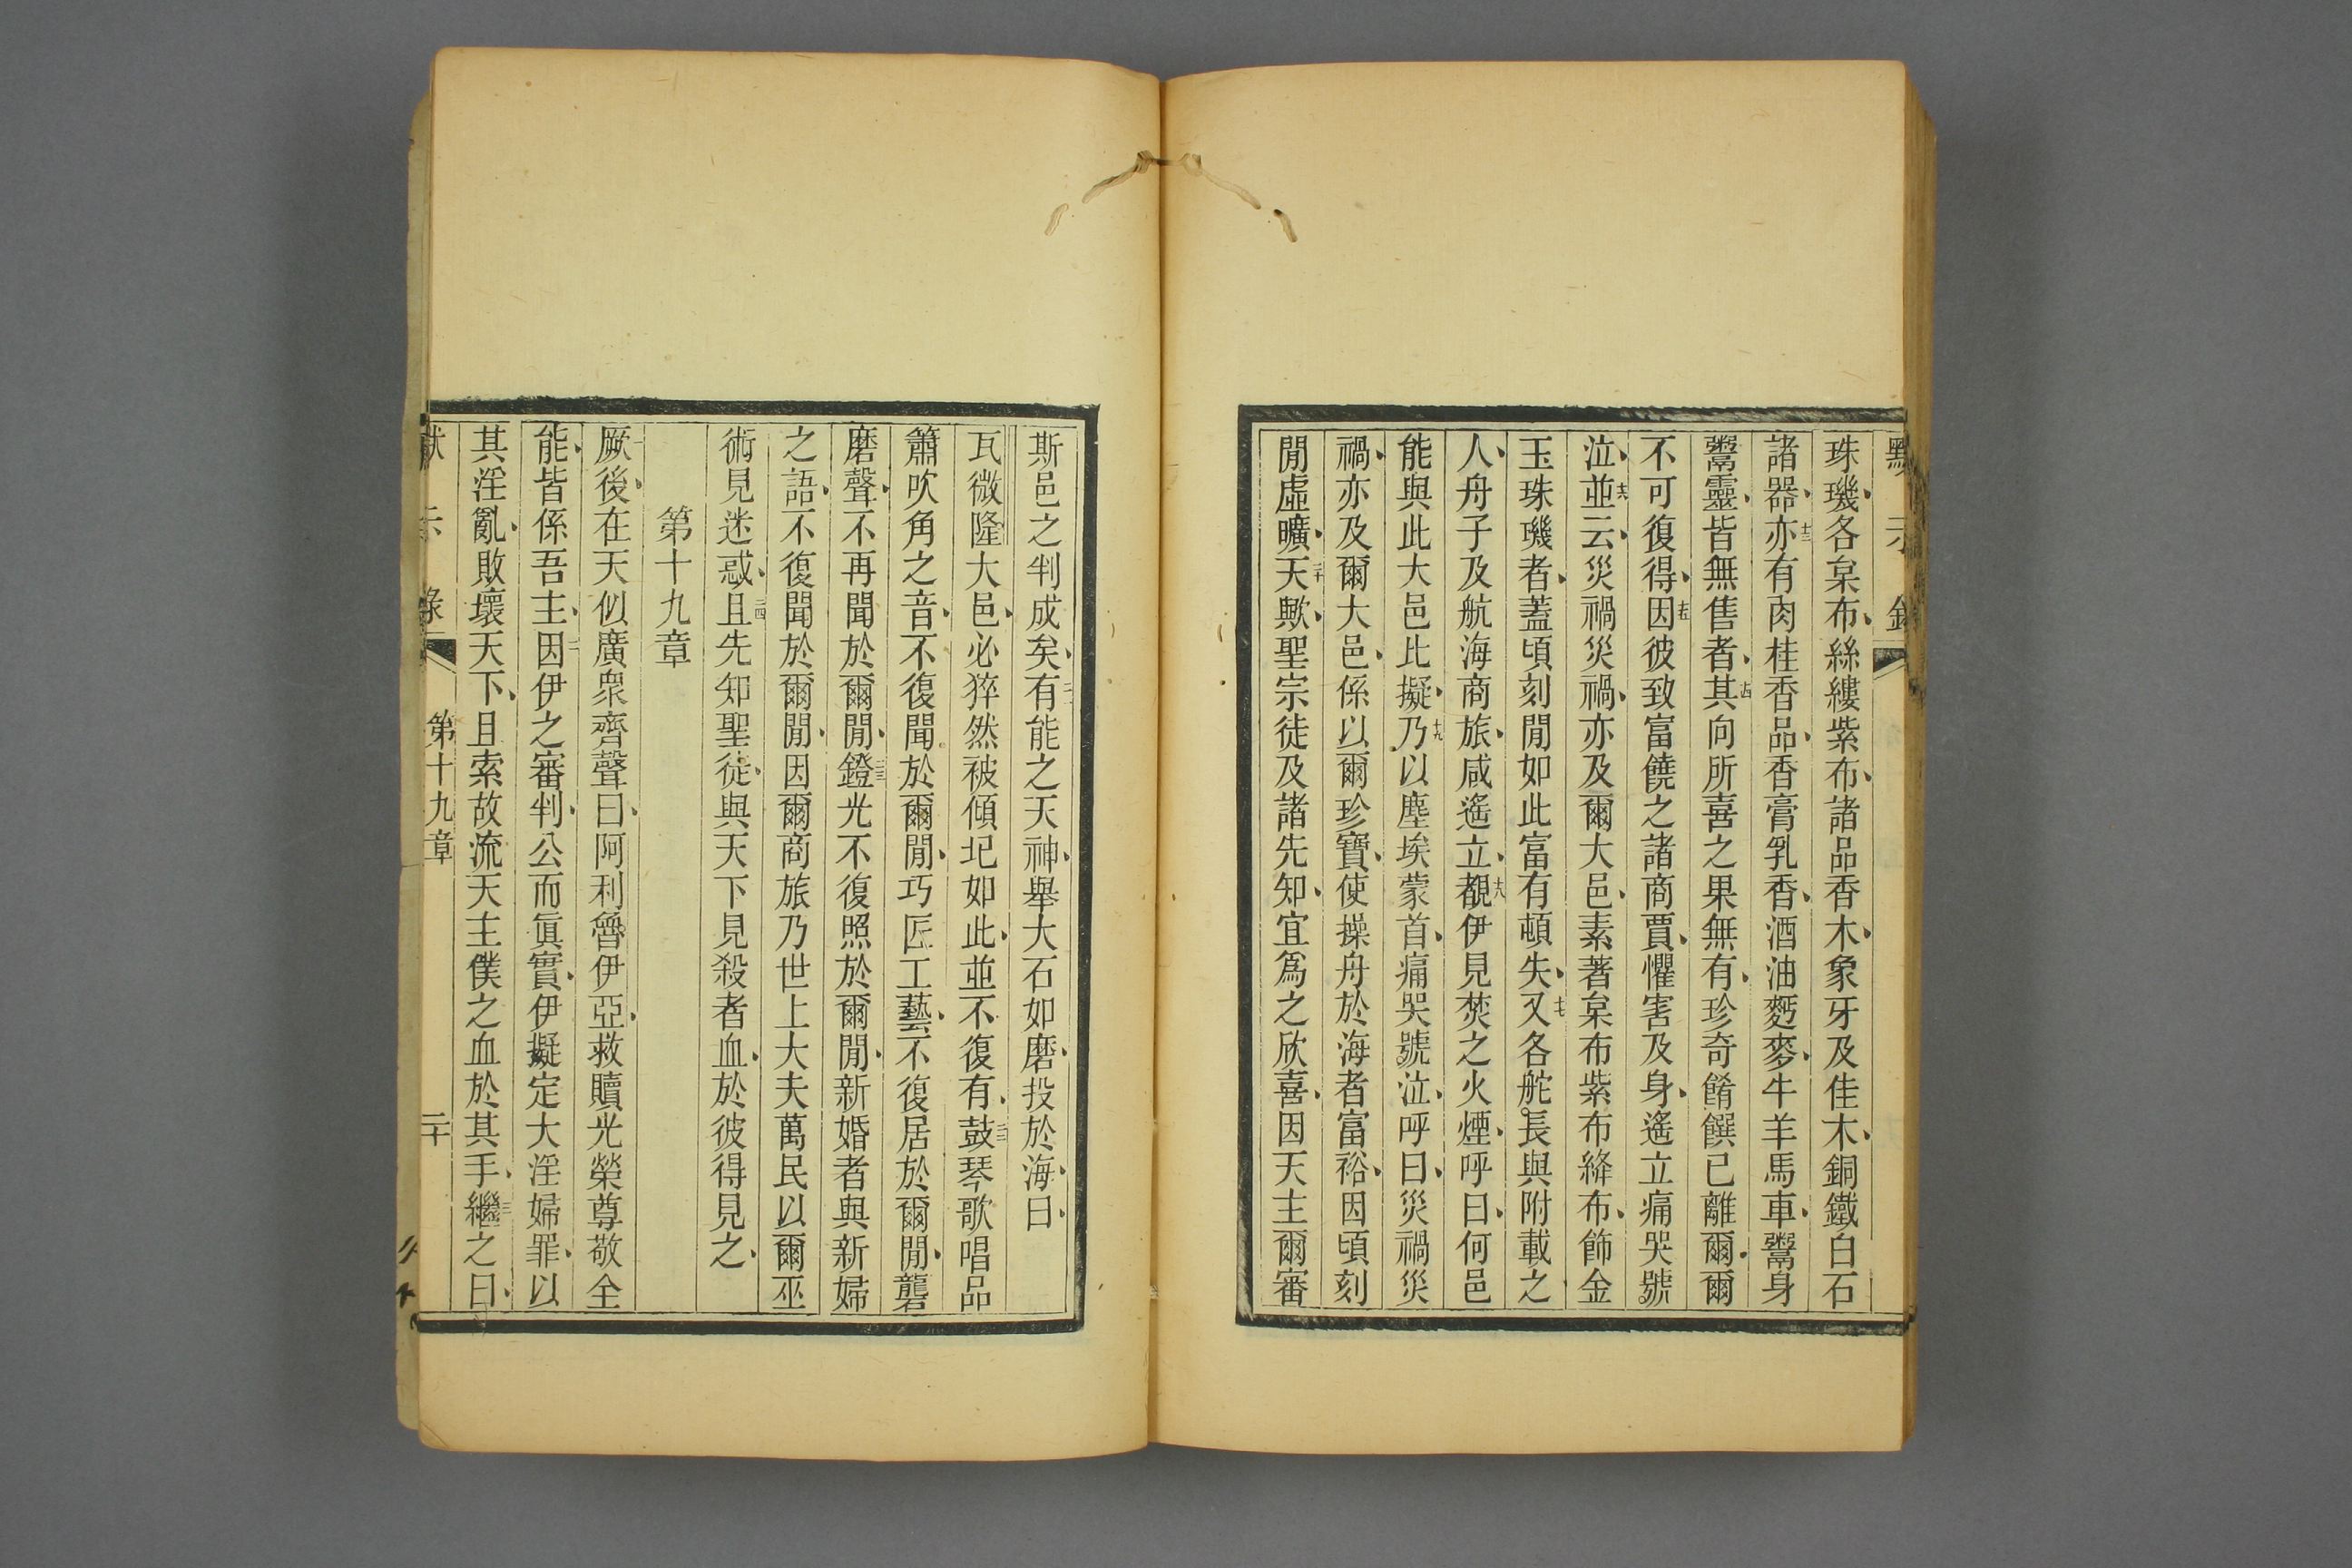 默示錄
珠璣、各枲布、絲縷紫布、諸品香木、象牙及佳木、銅鐵白石
諸器、十三亦有肉桂香品、香膏乳香、酒油麫麥、牛羊馬車、鬻身
鬻靈、皆無售者、十四其向所喜之果無有、珍奇餚饌已離爾、爾
不可復得、十五因彼致富饒之諸商賈、懼害及身、遙立痛哭號
泣、十六並云、災禍災禍、亦及爾大邑、素著枲布紫布絳布、飾金
玉珠璣者、蓋頃刻閒如此富有頓失、十七又各舵長與附載之
人、舟子及航海商旅、咸遙立、十八覩伊見焚之火煙、呼曰、何邑
能與此大邑比擬、十九乃以塵埃蒙首、痛哭號泣、呼曰、災禍災
禍、亦及爾大邑、係以爾珍寶、使操舟於海者富裕、因頃刻
閒虛曠、二十天歟、聖宗徒及諸先知、宜爲之欣喜、因天主爾審
斯邑之判成矣、二一有能之天神、舉大石如磨、投於海、曰、
瓦微隆大邑、必猝然被傾圮如此、並不復有、二二鼓琴歌唱品
簫吹角之音、不復聞於爾閒、巧匠工藝、不復居於爾閒、礱
磨聲、不再聞於爾閒、二三鐙光不復照於爾閒、新婚者與新婦
之語、不復聞於爾閒、因爾商旅乃世上大夫萬民以爾巫
術見迷惑、二四且先知聖徒、與天下見殺者血、於彼得見之、
第十九章
一厥後、在天似廣衆齊聲曰、阿利魯伊亞、救贖光榮尊敬全
能、皆係吾主、二因伊之審判、公而眞實、伊擬定大淫婦罪、以
其淫亂、敗壞天下、且索故流天主僕之血於其手、三繼之曰、
默示錄 第十九章 二十